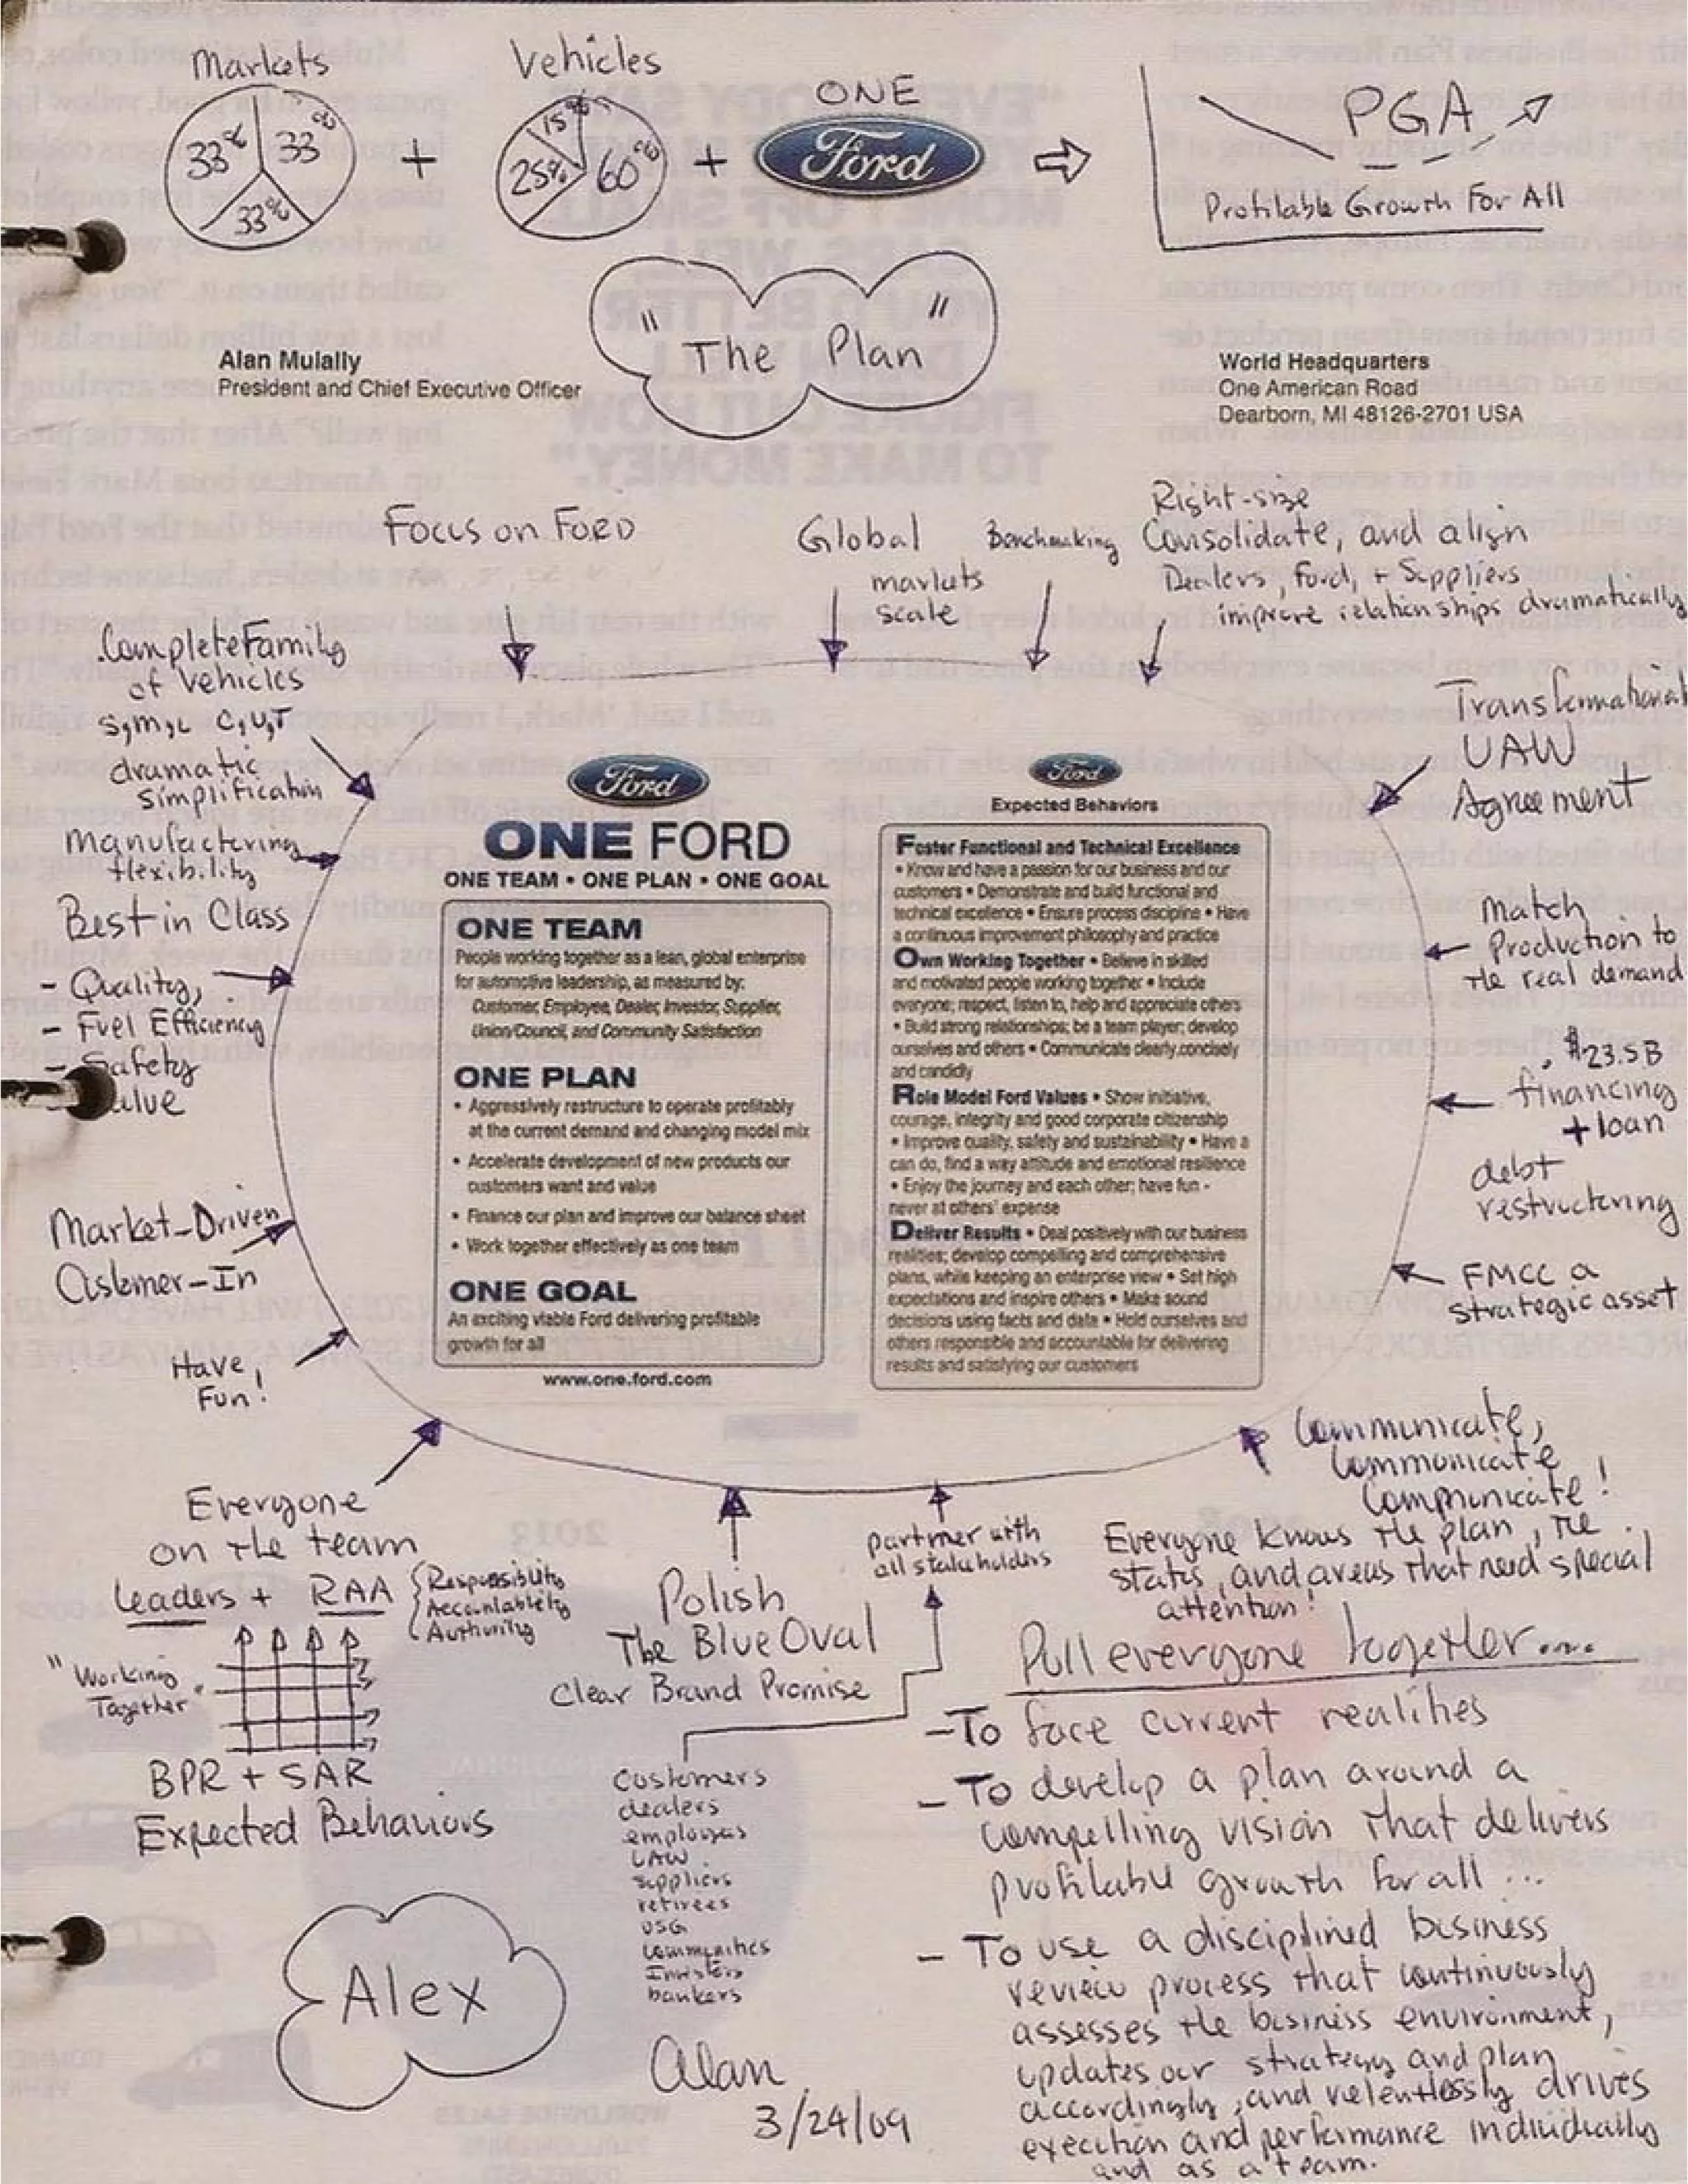 Markets
33% 33% 33%
+
Vehicles
15% 25% 60%
+
ONE
Ford
PGA
Profitable Growth For All
"The Plan"
Alan Mulally
President and Chief Executive Officer
World Headquarters
One American Road
Dearborn, MI 48126-2701 USA
Focus on FORD
Global
markets
scale
Benchmaking
Right-size
Consolidate, and align
Dealers, Ford, + Suppliers
improve relationships dramatically
Complete Family
of vehicles
S,M,L C,U,T
dramatic
simplification
Manufacturing
flexibility
Best in Class
- Quality,
- Fuel Efficiency
- Safety
Market-Driven
Customer-In
Have
Fun!
Transformational
UAW
Agreement
Match
Production to
the real demand
$23.5B
financing
+ loan
debt
restructering
FMCC a
strategic asset
Ford
ONE FORD
ONE TEAM • ONE PLAN • ONE GOAL
ONE TEAM
People working together as a lean, global enterprise
for automotive leadership, as measured by:
Customer, Employee, Dealer, Investor, Supplier,
Union/Council, and Community Satisfaction
ONE PLAN
• Aggressively restructure to operate profitably
at the current demand and changing model mix
• Accelerate development of new products our
customers want and value
• Finance our plan and improve our balance sheet
• Work together effectively as one team
ONE GOAL
An exciting viable Ford delivering profitable
growth for all
www.one.ford.com
Ford
Expected Behaviors
Foster Functional and Technical Excellence
• Know and have a passion for our business and our
customers • Demonstrate and build functional and
technical excellence • Ensure process discipline • Have
a continuous improvement philosophy and practice
Own Working Together • Believe in skilled
and motivated people working together • Include
everyone; respect, listen to, help and appreciate others
• Build strong relationships; be a team player; develop
ourselves and others • Communicate clearly, concisely
and candidly
Role Model Ford Values • Show initiative,
courage, integrity and good corporate citizenship
• Improve quality, safety and sustainability • Have a
can do, find a way attitude and emotional resilience
• Enjoy the journey and each other; have fun -
never at others' expense
Deliver Results • Deal positively with our business
realities; develop compelling and comprehensive
plans, while keeping an enterprise view • Set high
expectations and inspire others • Make sound
decisions using facts and data • Hold ourselves and
others responsible and accountable for delivering
results and satisfying our customers
Everyone
on the team
Leaders + RAA
Responsibility
Accountability
Authority
"Working
Together"
BPR + SAR
Expected Behaviors
Polish
The Blue Oval
Clear Brand Promise
partner with
all stakeholders
Customers
dealers
employees
UAW
suppliers
retirees
USG
Communities
Investors
bankers
Communicate,
Communicate
Communicate!
Everyone knows the plan, the
status, and areas that need special
attention!
Pull everyone together....
- To face current realities
- To develop a plan around a
compelling vision that delivers
profitable growth for all ...
- To use a disciplined business
review process that continuously
assesses the business environment,
updates our strategy and plan
accordingly, and relentlessly drives
execution and performance individually
and as a team.
Alex
Alan
3/24/09